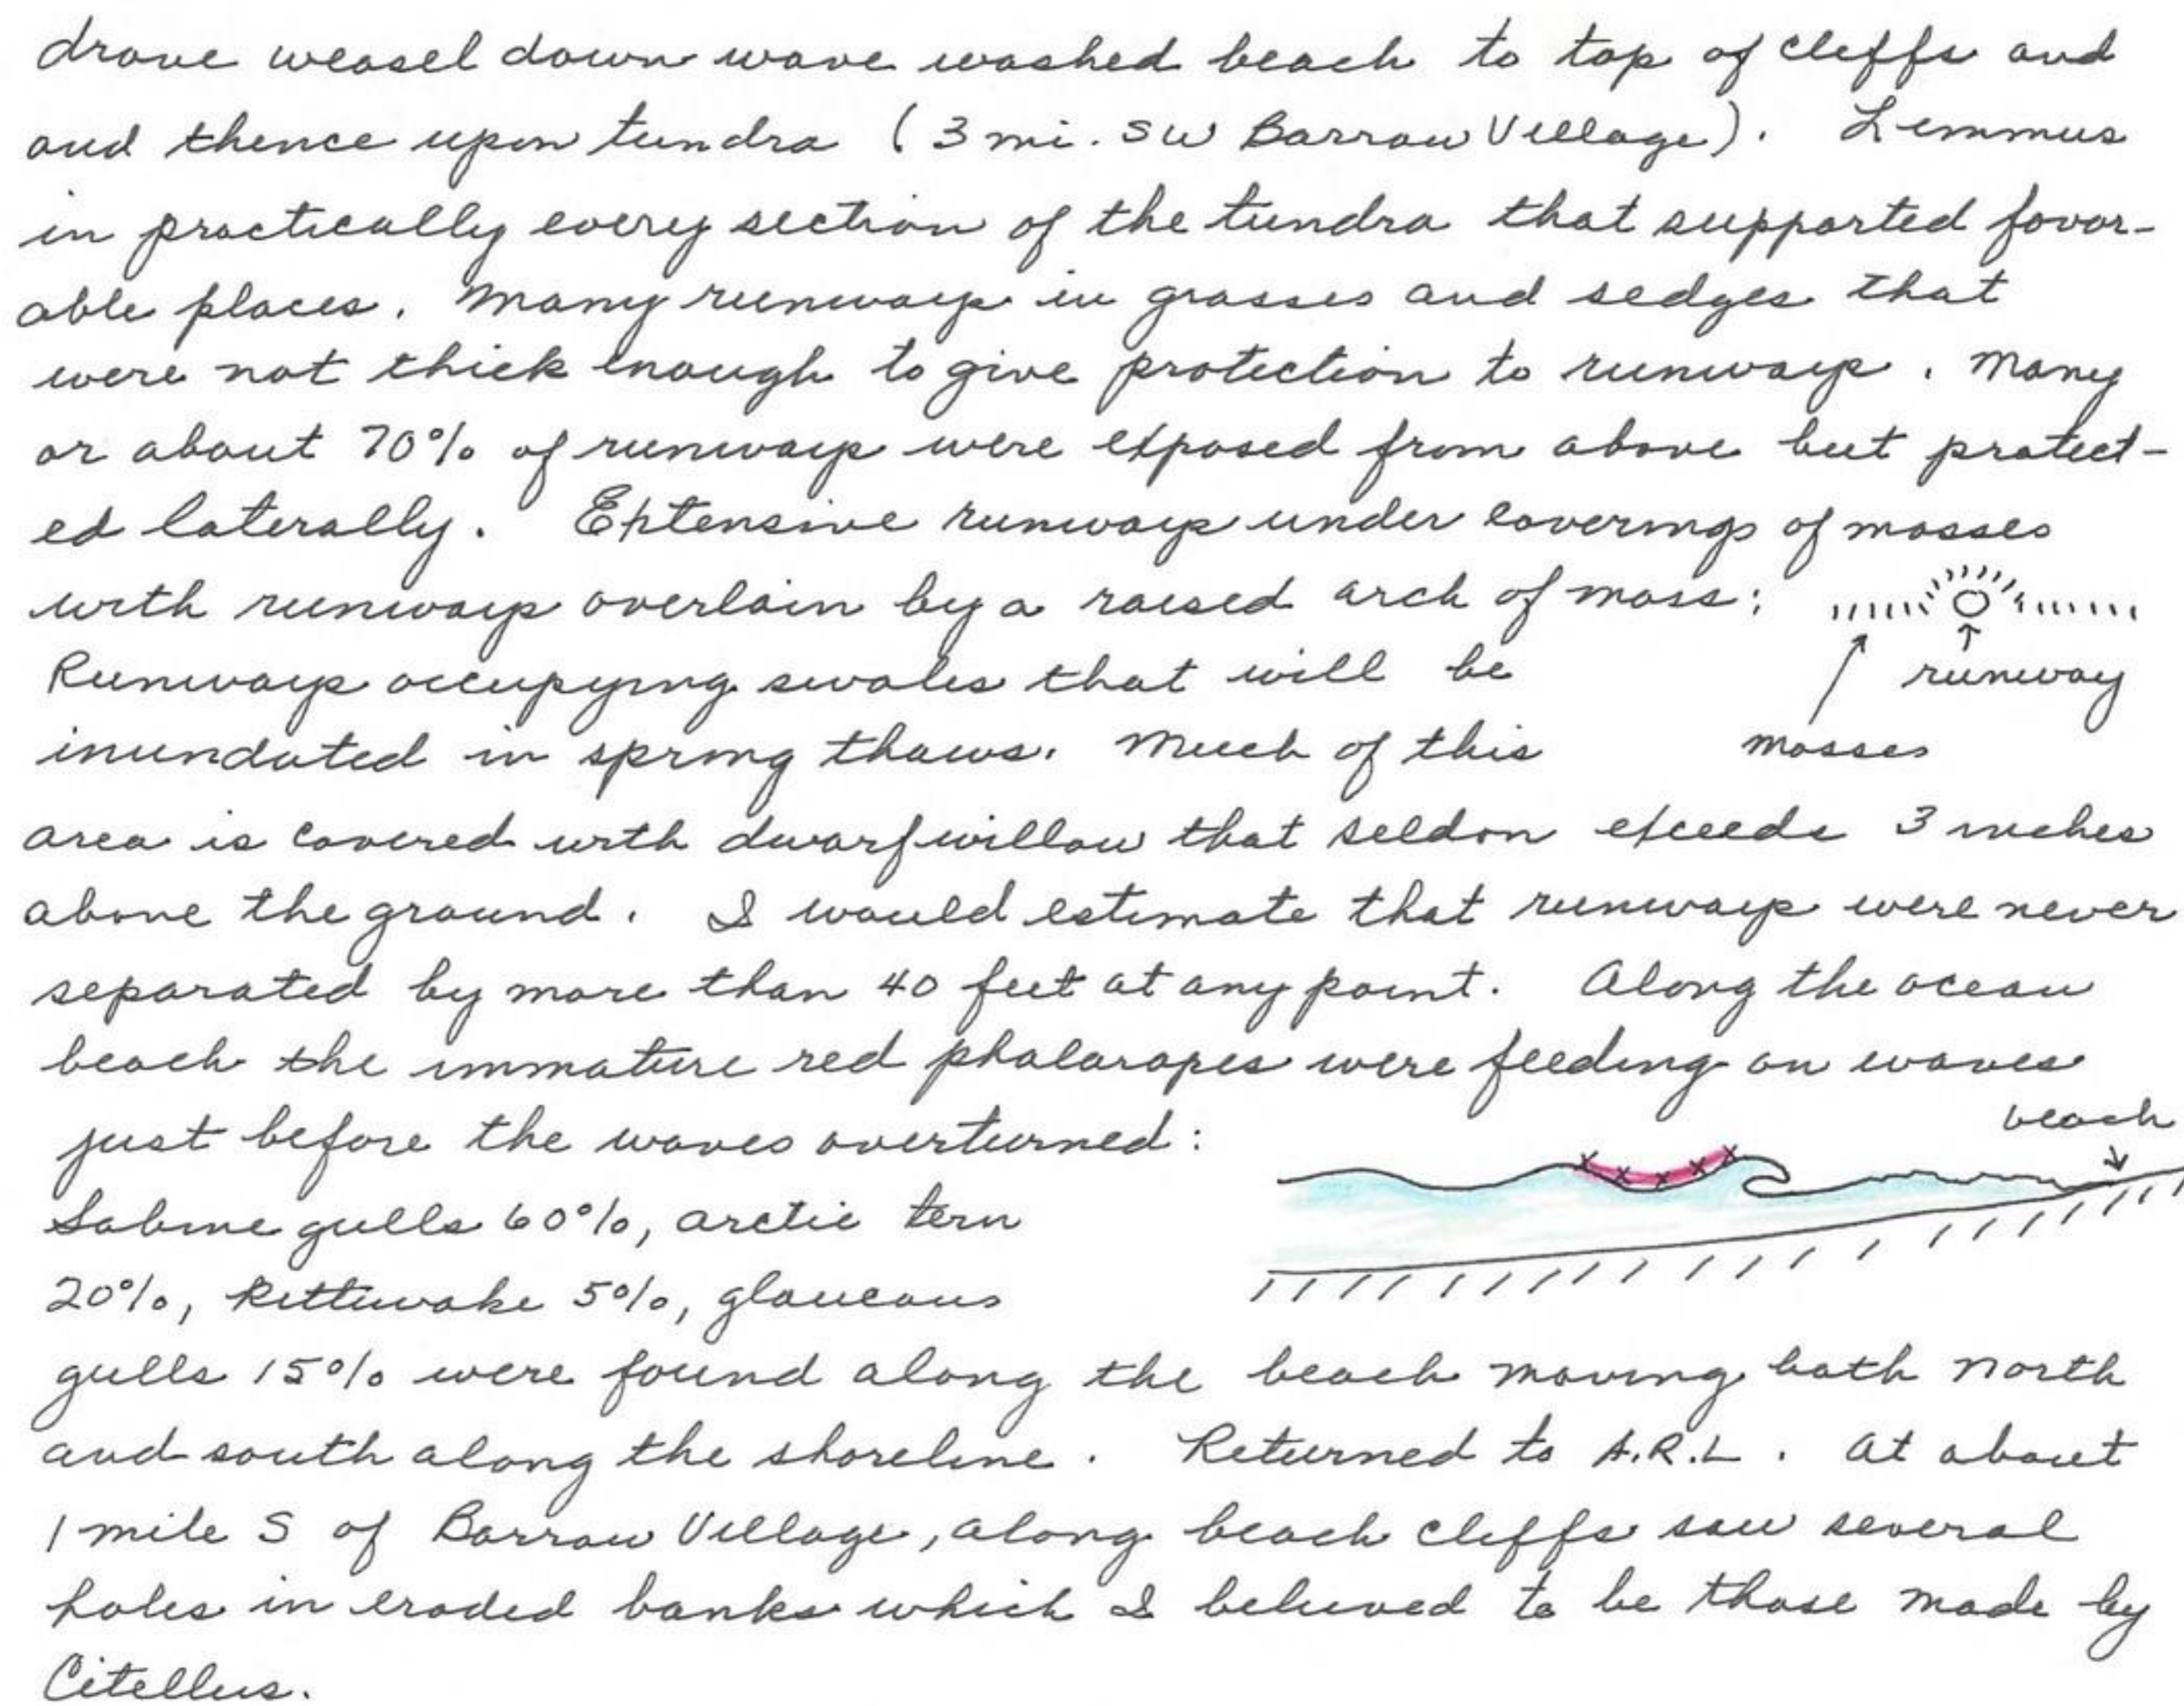 drove weasel down wave washed beach to top of cliffs and
and thence upon tundra (3 mi. SW Barrow Village). Lemmus
in practically every section of the tundra that supported favor-
able places. Many runways in grasses and sedges that
were not thick enough to give protection to runways. Many
or about 70% of runways were exposed from above but protect-
ed laterally. Extensive runways under coverings of mosses
with runways overlain by a raised arch of moss:
Runways occupying swales that will be
runway
inundated in spring thaws. Much of this
mosses
area is covered with dwarf willow that seldon exceeds 3 inches
above the ground. I would estimate that runways were never
separated by more than 40 feet at any point. Along the ocean
beach the immature red phalaropes were feeding on waves
just before the waves overturned:
beach
Sabine gulls 60%, arctic tern
20%, Kittiwake 5%, glaucous
gulls 15% were found along the beach moving both north
and south along the shoreline. Returned to A.R.L. At about
1 mile S of Barrow Village, along beach cliffs saw several
holes in eroded banks which I believed to be those made by
Citellus.